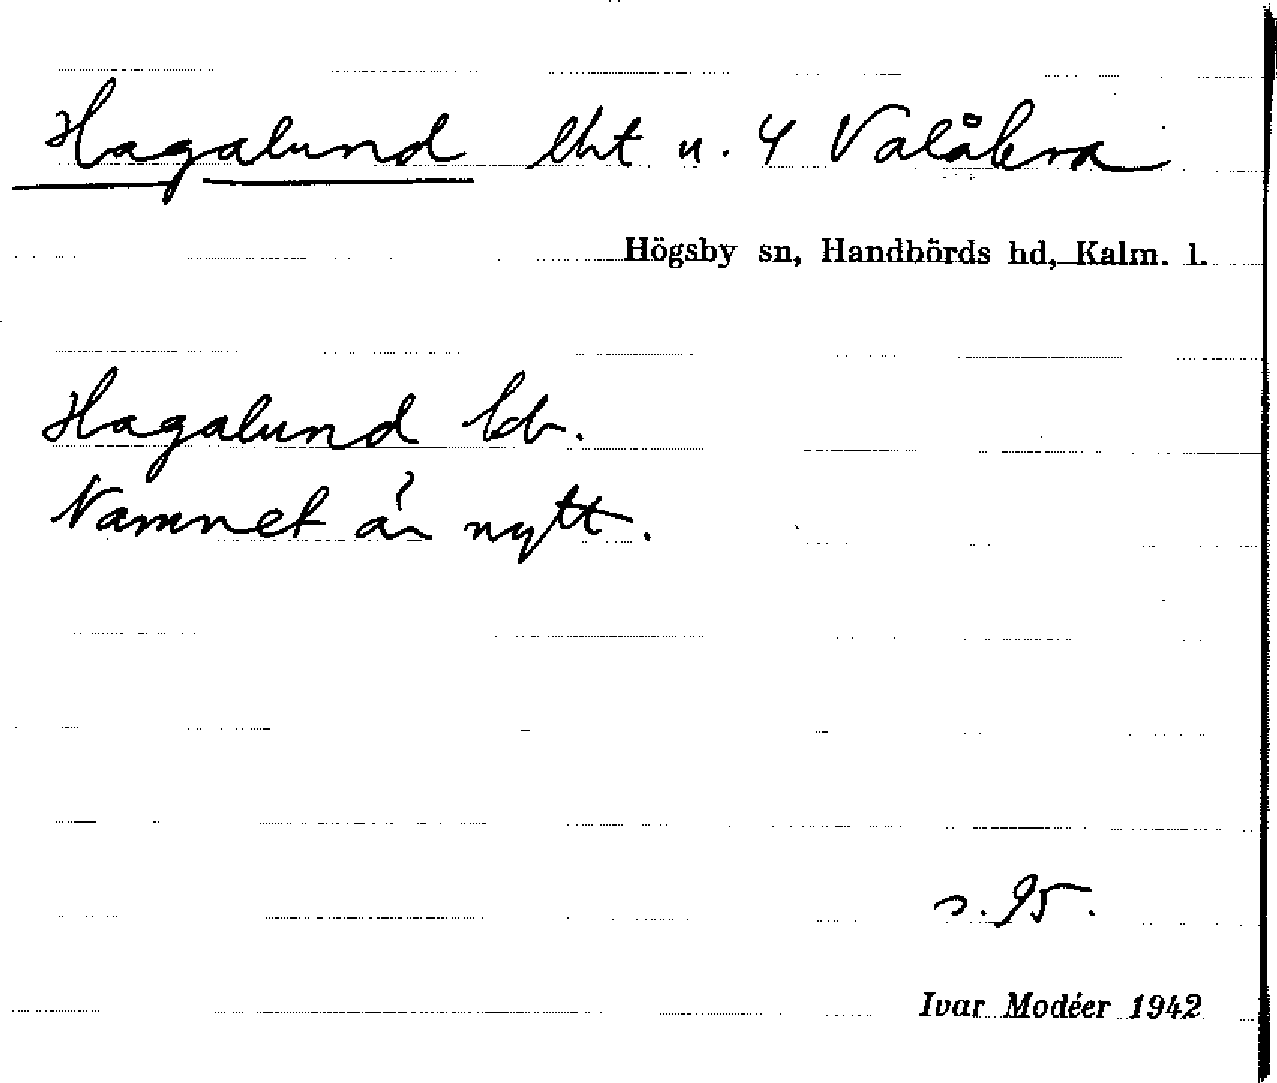 Hagalund lht u. 4 Valåkra
Högsby sn, Handbörds hd, Kalm. l.
Hagalund
Namnet är nytt.
s. 95.
Ivar Modéer 1942